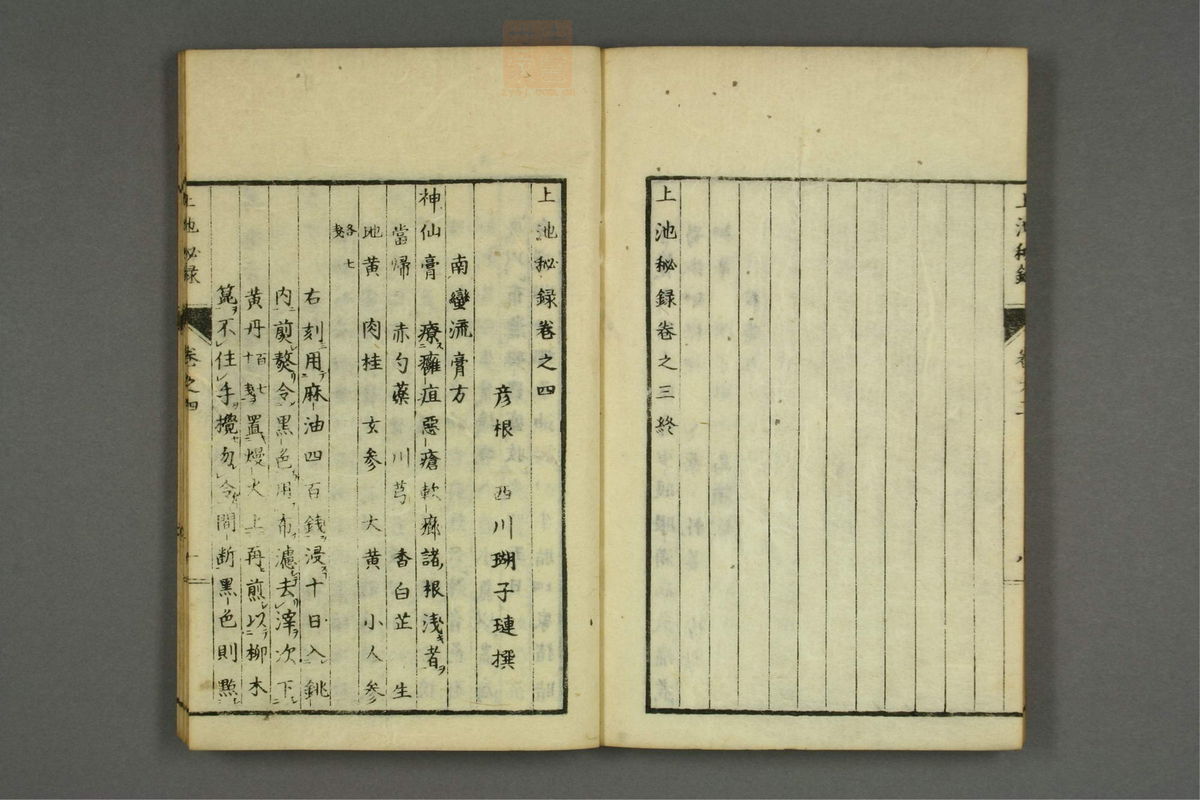 上池秘録卷之三終
上池秘録卷之四
彦根 西川瑚子璉撰
南蠻流膏方
神仙膏 療癰疽惡瘡軟癤諸根淺者
當帰 赤勺藥 川芎 香白芷 生
地黄 肉桂 玄參 大黄 小人參
各七
右刻用麻油四百錢浸十日入銚
内煎熬令黒色用布濾去滓次下
黄丹百七十置熳火上再煎以柳木
箆不住手攪勿令間断黒色則㸃
上池秘録
卷之四